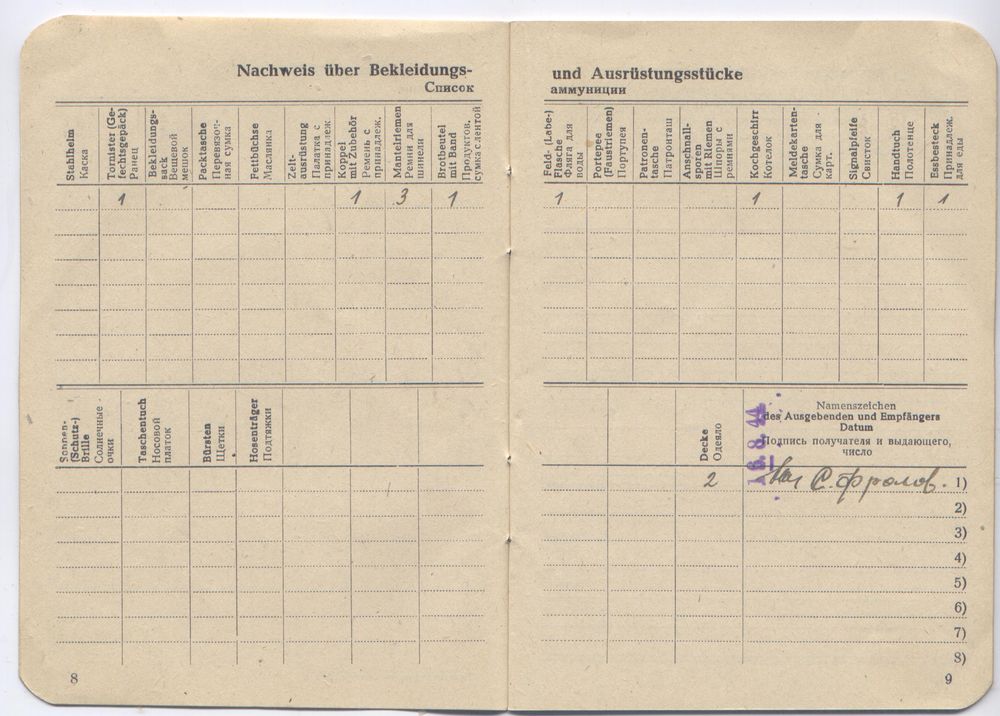 Nachweis über Bekleidungs-
Список
Stahlhelm
Каска
Tornister (Ge-
fechtsgepäck)
Ранец
Bekleidungs-
sack
Вещевой
мешок
Packtasche
Перевязоч-
ная сумка
Fettbüchse
Масланка
Zelt-
ausrüstung
Палатка с
принадлеж.
Koppel
mit Zubehör
Ремень с
принадлеж.
Mantelriemen
Ремни для
шинели
Brotbeutel
mit Band
Продуктов.
сумка с лентой
1 1 3 1
Sonnen-
(Schutz-)
Brille
Солнечные
очки
Taschentuch
Носовой
платок
Bürsten
Щетки
Hosenträger
Подтяжки
8
und Ausrüstungsstücke
аммуниции
Feld- (Labe-)
Flasche
Фляга для
воды
Portepee
(Faustriemen)
Портупея
Patronen-
tasche
Патронташ
Anschnall-
sporen
mit Riemen
Шпоры с
ремнями
Kochgeschirr
Котелок
Meldekarten-
tasche
Сумка для
карт.
Signalpfeife
Свисток
Handtuch
Полотенце
Essbesteck
Принадлеж.
для еды
1 1 1 1
Decke
Одеяло
Namenszeichen
des Ausgebenden und Empfängers
Datum
Подпись получателя и выдающего,
число
16. 8. 44
2 С. Фролов. 1)
2)
3)
4)
5)
6)
7)
8)
9